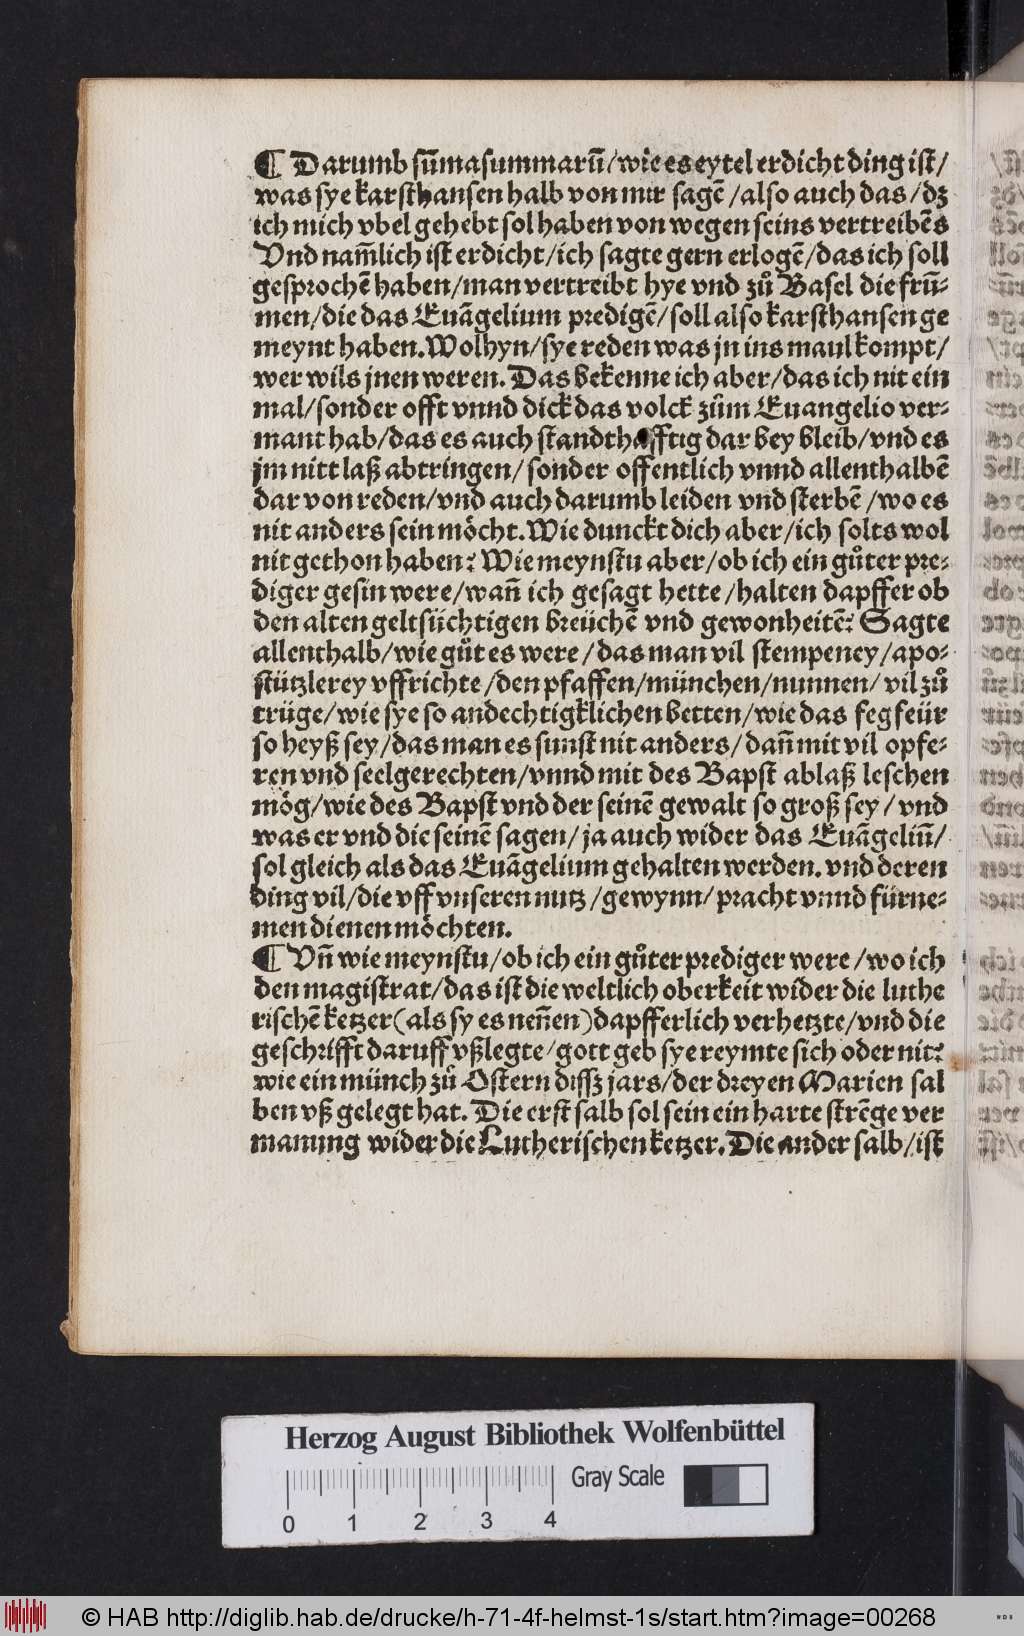 ¶ Darumb sūmasummarū/wie es eytel erdicht ding ist/
was sye karsthansen halb von mir sagē/also auch das/dz
ich mich vbel gehebt sol haben von wegen seins vertreibēs
Vnd nam̄lich ist erdicht/ich sagte gern erlogē/das ich soll
gesprochē haben/man vertreibt hye vnd zů Basel die frū⸗
men/die das Euāgelium predigē/soll also karsthansen ge
meynt haben. Wolhyn/sye reden was jn ins maul kompt/
wer wils jnen weren. Das bekenne ich aber/das ich nit ein
mal/sonder offt vnnd dick das volck zům Euangelio ver⸗
mant hab/das es auch standthafftig dar bey bleib/vnd es
jm nitt laß abtringen/sonder offentlich vnnd allenthalbē
dar von reden/vnd auch darumb leiden vnd sterbē/wo es
nit anders sein möcht. Wie dunckt dich aber/ich solts wol
nit gethon haben? Wie meynstu aber/ob ich ein gůter pre⸗
diger gesin were/wan̄ ich gesagt hette/halten dapffer ob
den alten geltsüchtigen breüchē vnd gewonheitē? Sagte
allenthalb/wie gůt es were/das man vil stempeney/apo⸗
stützlerey vffrichte/den pfaffen/münchen/nunnen/vil zů
trüge/wie sye so andechtigklichen betten/wie das fegfeür
so heyß sey/das man es sunst nit anders/dan̄ mit vil opfe⸗
ren vnd seelgerechten/vnnd mit des Bapst ablaß leschen
mög/wie des Bapst vnd der seinē gewalt so groß sey/vnd
was er vnd die seinē sagen/ja auch wider das Euāgeliū/
sol gleich als das Euāgelium gehalten werden. vnd deren
ding vil/die vff vnseren nutz/gewynn/pracht vnnd fürne⸗
men dienen möchten.
¶ Vn̄ wie meynstu/ob ich ein gůter prediger were/wo ich
den magistrat/das ist die weltlich oberkeit wider die luthe
rischē ketzer(als sy es nen̄en)dapfferlich verhetzte/vnd die
geschrifft daruff vßlegte/gott geb sye reymte sich oder nit?
wie ein münch zů Ostern dissz jars/der dreyen Marien sal
ben vß gelegt hat. Die erst salb sol sein ein harte strēge ver
manung wider die Lutherischen ketzer. Die ander salb/ist
Herzog August Bibliothek Wolfenbüttel
Gray Scale
0 1 2 3 4
© HAB http://diglib.hab.de/drucke/h-71-4f-helmst-1s/start.htm?image=00268